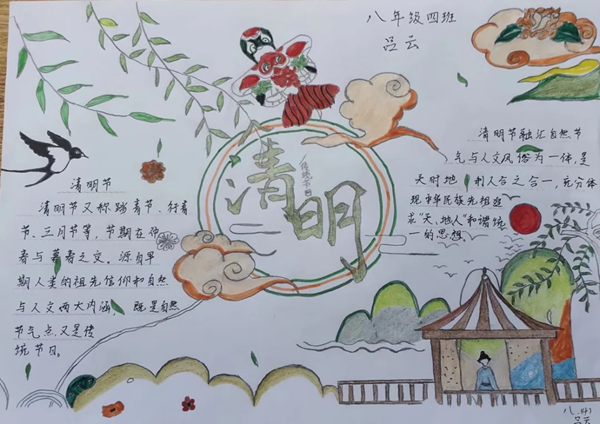 八年级四班
吕云
清明
传统节日
清明节
清明节又称踏青节、行青
节、三月节等，节期在仲
春与暮春之交。源自早
期人类的祖先信仰和自然
与人文两大内涵 既是自然
节气点，又是传
统节日。
清明节融汇自然节
气与人文风俗为一体，是
天时地 利人合之合一，充分体
现中华民族先祖追
求"天、地人"和谐统
的思想
八.(4)
吕云